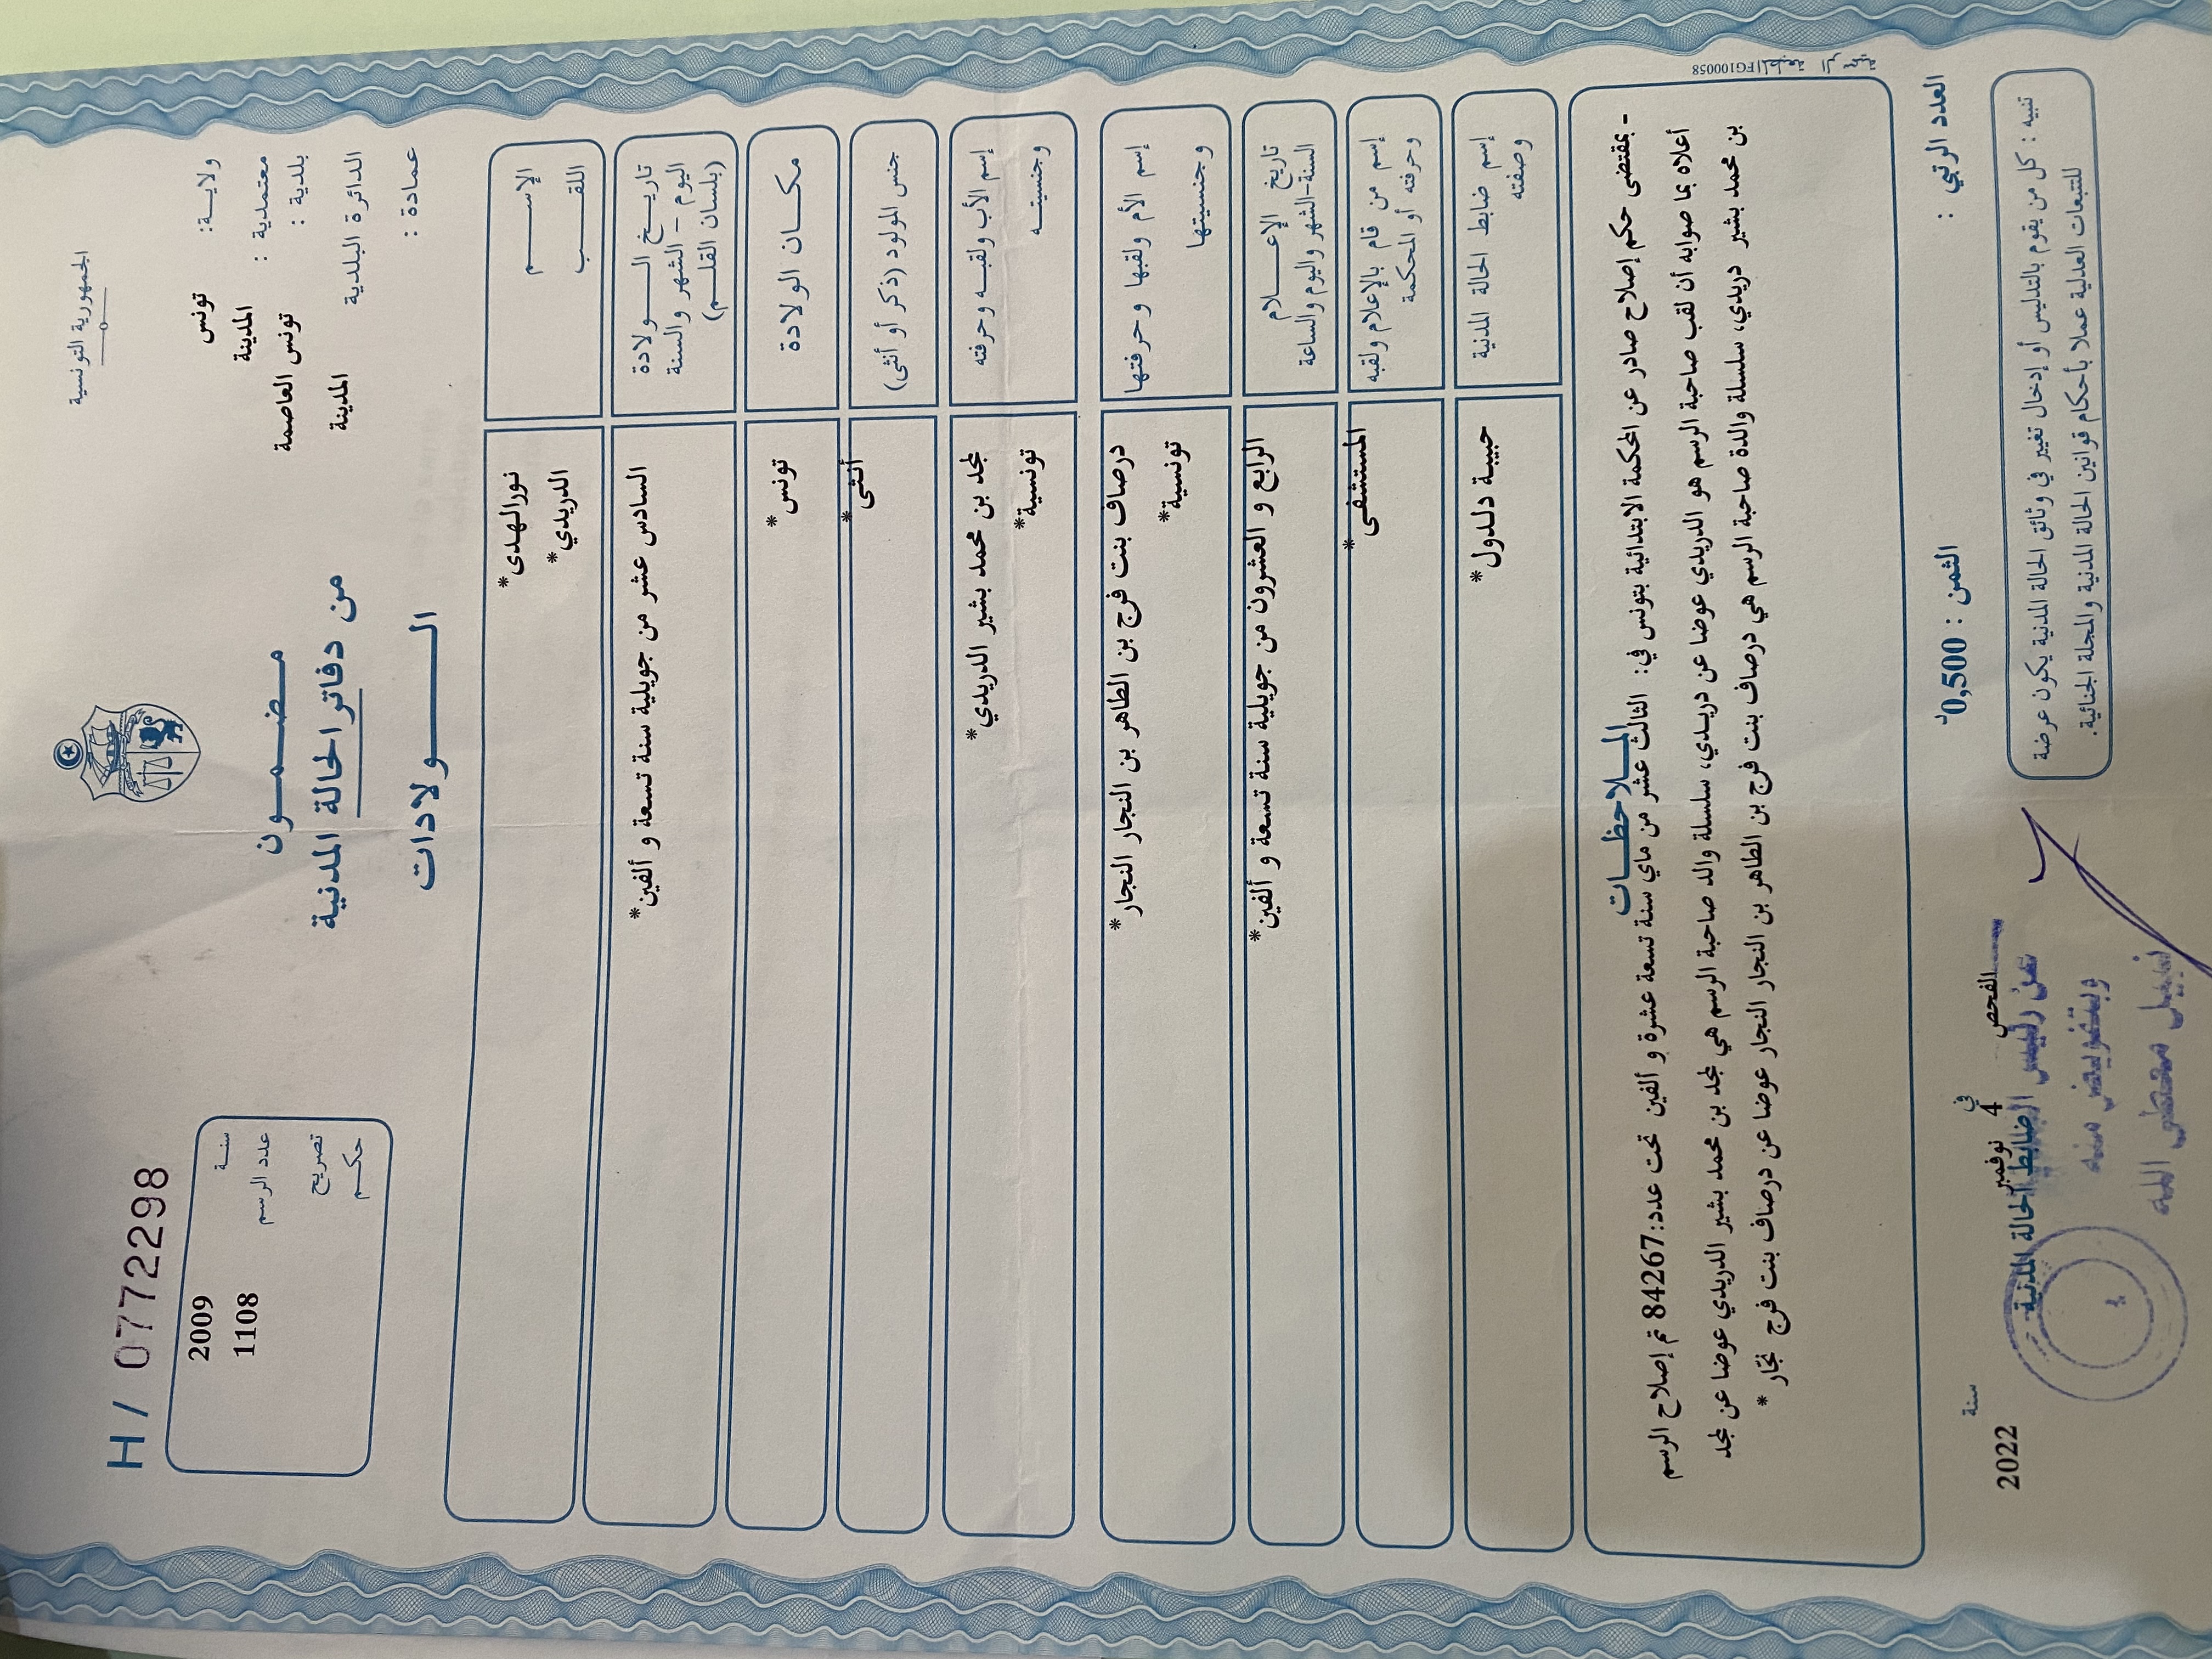 الجمهورية التونسية
H / 0772298
ولايـة: تونس
معتمدية : المدينة
بلدية : تونس العاصمة
الدائرة البلدية المدينة
عمادة :
مضمــون
من دفاتر الحالة المدنية
الــولادات
سنـة 2009
عدد الرسم 1108
تصريح
حكـم
الإســـم نورالهدى*
اللقـــب الدريدي*
تاريـخ الــولادة السادس عشر من جويلية سنة تسعة و ألفين*
اليوم – الشهر والسنة
(بلسان القلـم)
مكـان الولادة تونس*
جنس المولود (ذكر أو أنثى) أنثى*
إسم الأب ولقبـه وحرفته مجد بن محمد بشير الدريدي*
وجنسيتـه تونسية*
إسم الأم ولقبها وحرفتها درصاف بنت فرج بن الطاهر بن النجار النجار*
وجنسيتها تونسية*
تاريخ الإعــلام الرابع و العشرون من جويلية سنة تسعة و ألفين*
السنة-الشهر واليوم والساعة
إسم من قام بالإعلام ولقبه المستشفى*
وحرفته أو المحكمة
إسم ضابط الحالة المدنية حبيبة دلدول*
وصفته
الملاحظـات
- بمقتضى حكم إصلاح صادر عن المحكمة الابتدائية بتونس في: الثالث عشر من ماي سنة تسعة عشرة و ألفين تحت عدد:84267 تم إصلاح الرسم
أعلاه بما صوابه أن لقب صاحبة الرسم هو الدريدي عوضا عن دريدي، سلسلة والد صاحبة الرسم هي مجد بن محمد بشير الدريدي عوضا عن مجد
بن محمد بشير دريدي، سلسلة والدة صاحبة الرسم هي درصاف بنت فرج بن الطاهر بن النجار النجار عوضا عن درصاف بنت فرج نجّار *
المطبعة الرسمية FG100058
العدد الرتبي :
الثمن : 0,500د
الفحص في 4 نوفمبر سنة 2022
ضابط الحالة المدنية
عن رئيس
وبتفويض منه
نبيل
تنبيه : كل من يقوم بالتدليس أو إدخال تغيير في وثائق الحالة المدنية يكون عرضة
للتتبعات العدلية عملا بأحكام قوانين الحالة المدنية والمجلة الجنائية.